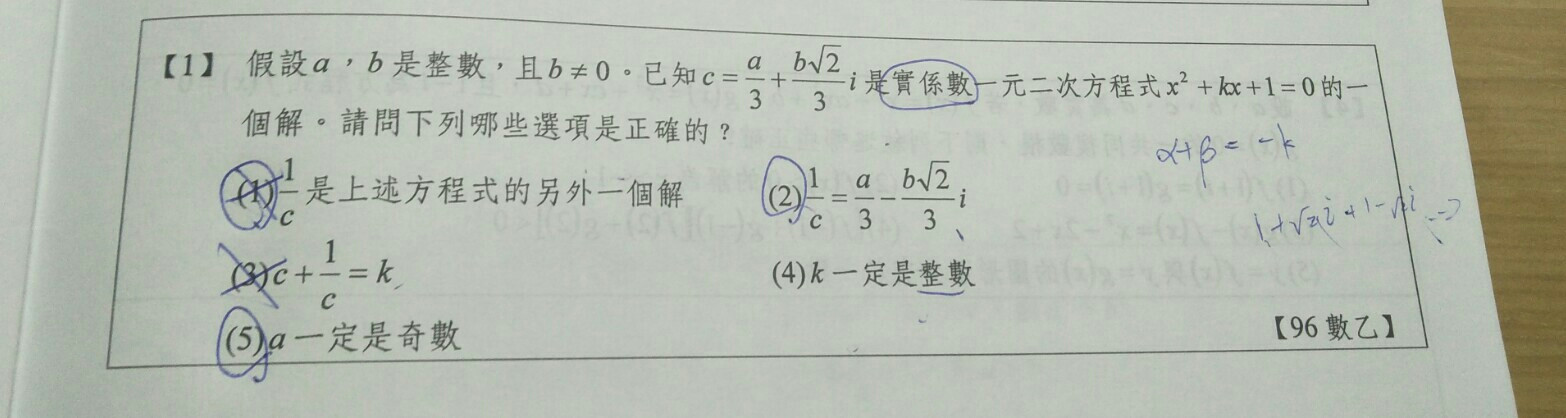 【1】 假設a，b是整數，且b≠0。已知c=a/3+b√2/3 i是實係數一元二次方程式x²+kx+1=0的一
個解。請問下列哪些選項是正確的？
α+β=-k
(1)1/c是上述方程式的另外一個解 (2)1/c=a/3-b√2/3 i
1+√2i+1-√2i
(3)c+1/c=k (4)k一定是整數
(5)a一定是奇數
【96 數乙】